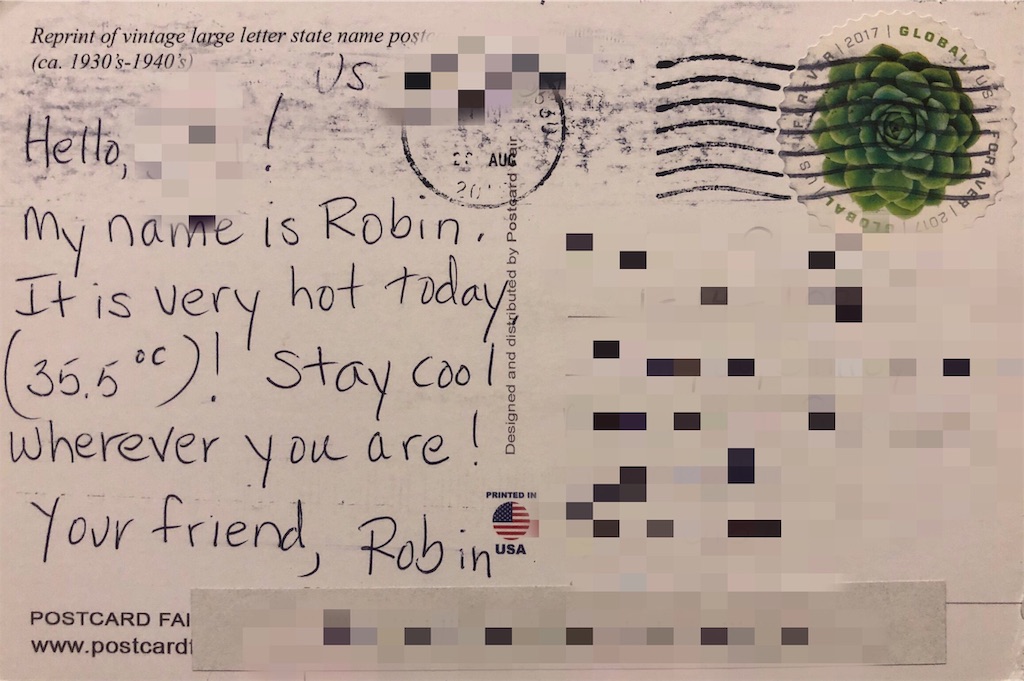 Reprint of vintage large letter state name postc
(ca. 1930's-1940's)
US
Hello, !
My name is Robin.
It is very hot today
(35.5°C)! Stay cool
wherever you are!
Your friend, Robin
POSTCARD FAI
www.postcardf
AUG
Designed and distributed by Postcard Fair
PRINTED IN
USA
GLOBAL | USA | FOREVER | 2017 | GLOBAL | USA | FOREVER | 2017